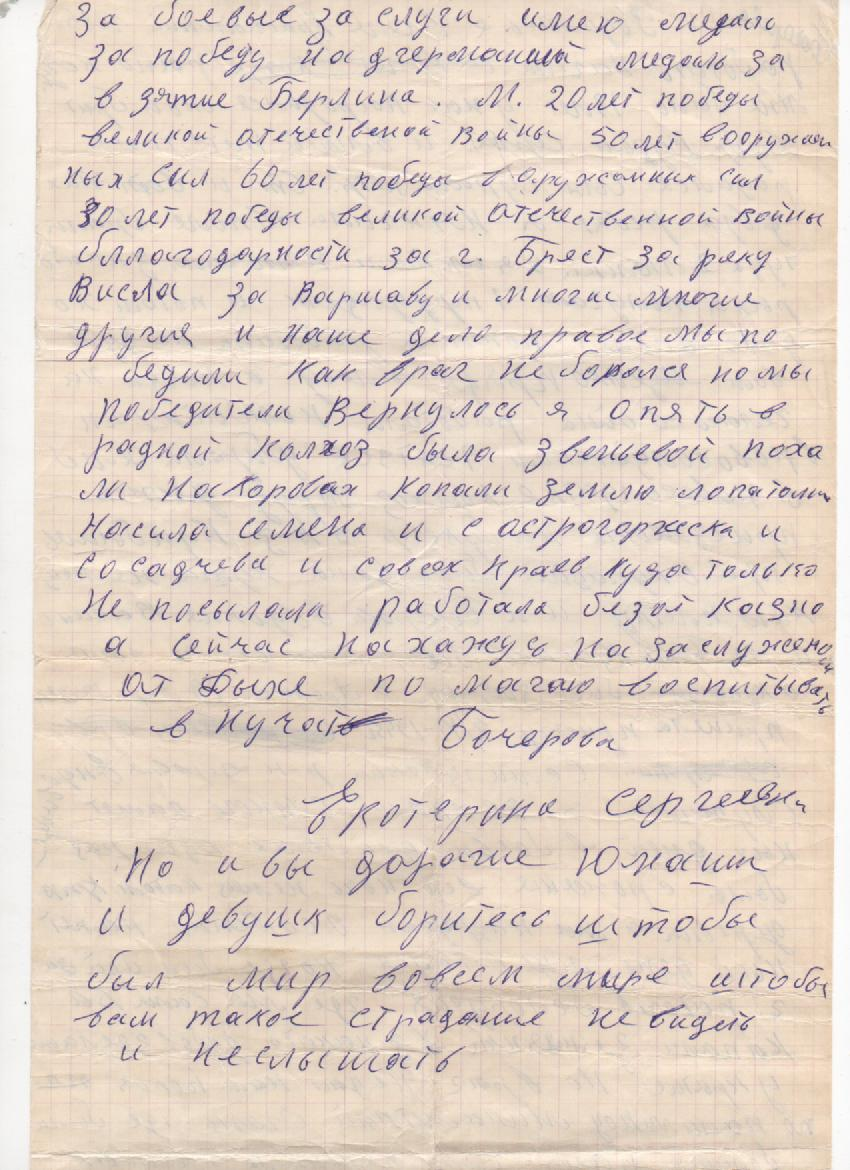 За боевые за слуги имею медаль
за победу надгерманий медаль за
в зятие Берлина. М. 20 лет победы
великой отечественой войны 50 лет вооружен
ных сил 60 лет победы воружонных сил
30 лет победы великой отечественной войны
бллагодарности за г. Брест за реку
Висла за Варшаву и многие многие
другия и наше дело правое мы по
бедили как враг неборолся но мы
победители Вернулось я опять в
радной колхоз была звеньевой поха
ли накоровах копали землю лопатами
насила семена и с острогоржска и
со садчева и совсех краев куда только
не посылали работала безот казно
а сейчас нахажусь на заслуженом
от дыхе по магаю воспитывать
в нучат Бочарова
Екатерина Сергеевна
Но и вы дорагие Юнаши
и девушк боритесь штобы
был мир вовсем мире штобы
вам такое страдание невидеть
и неслышать